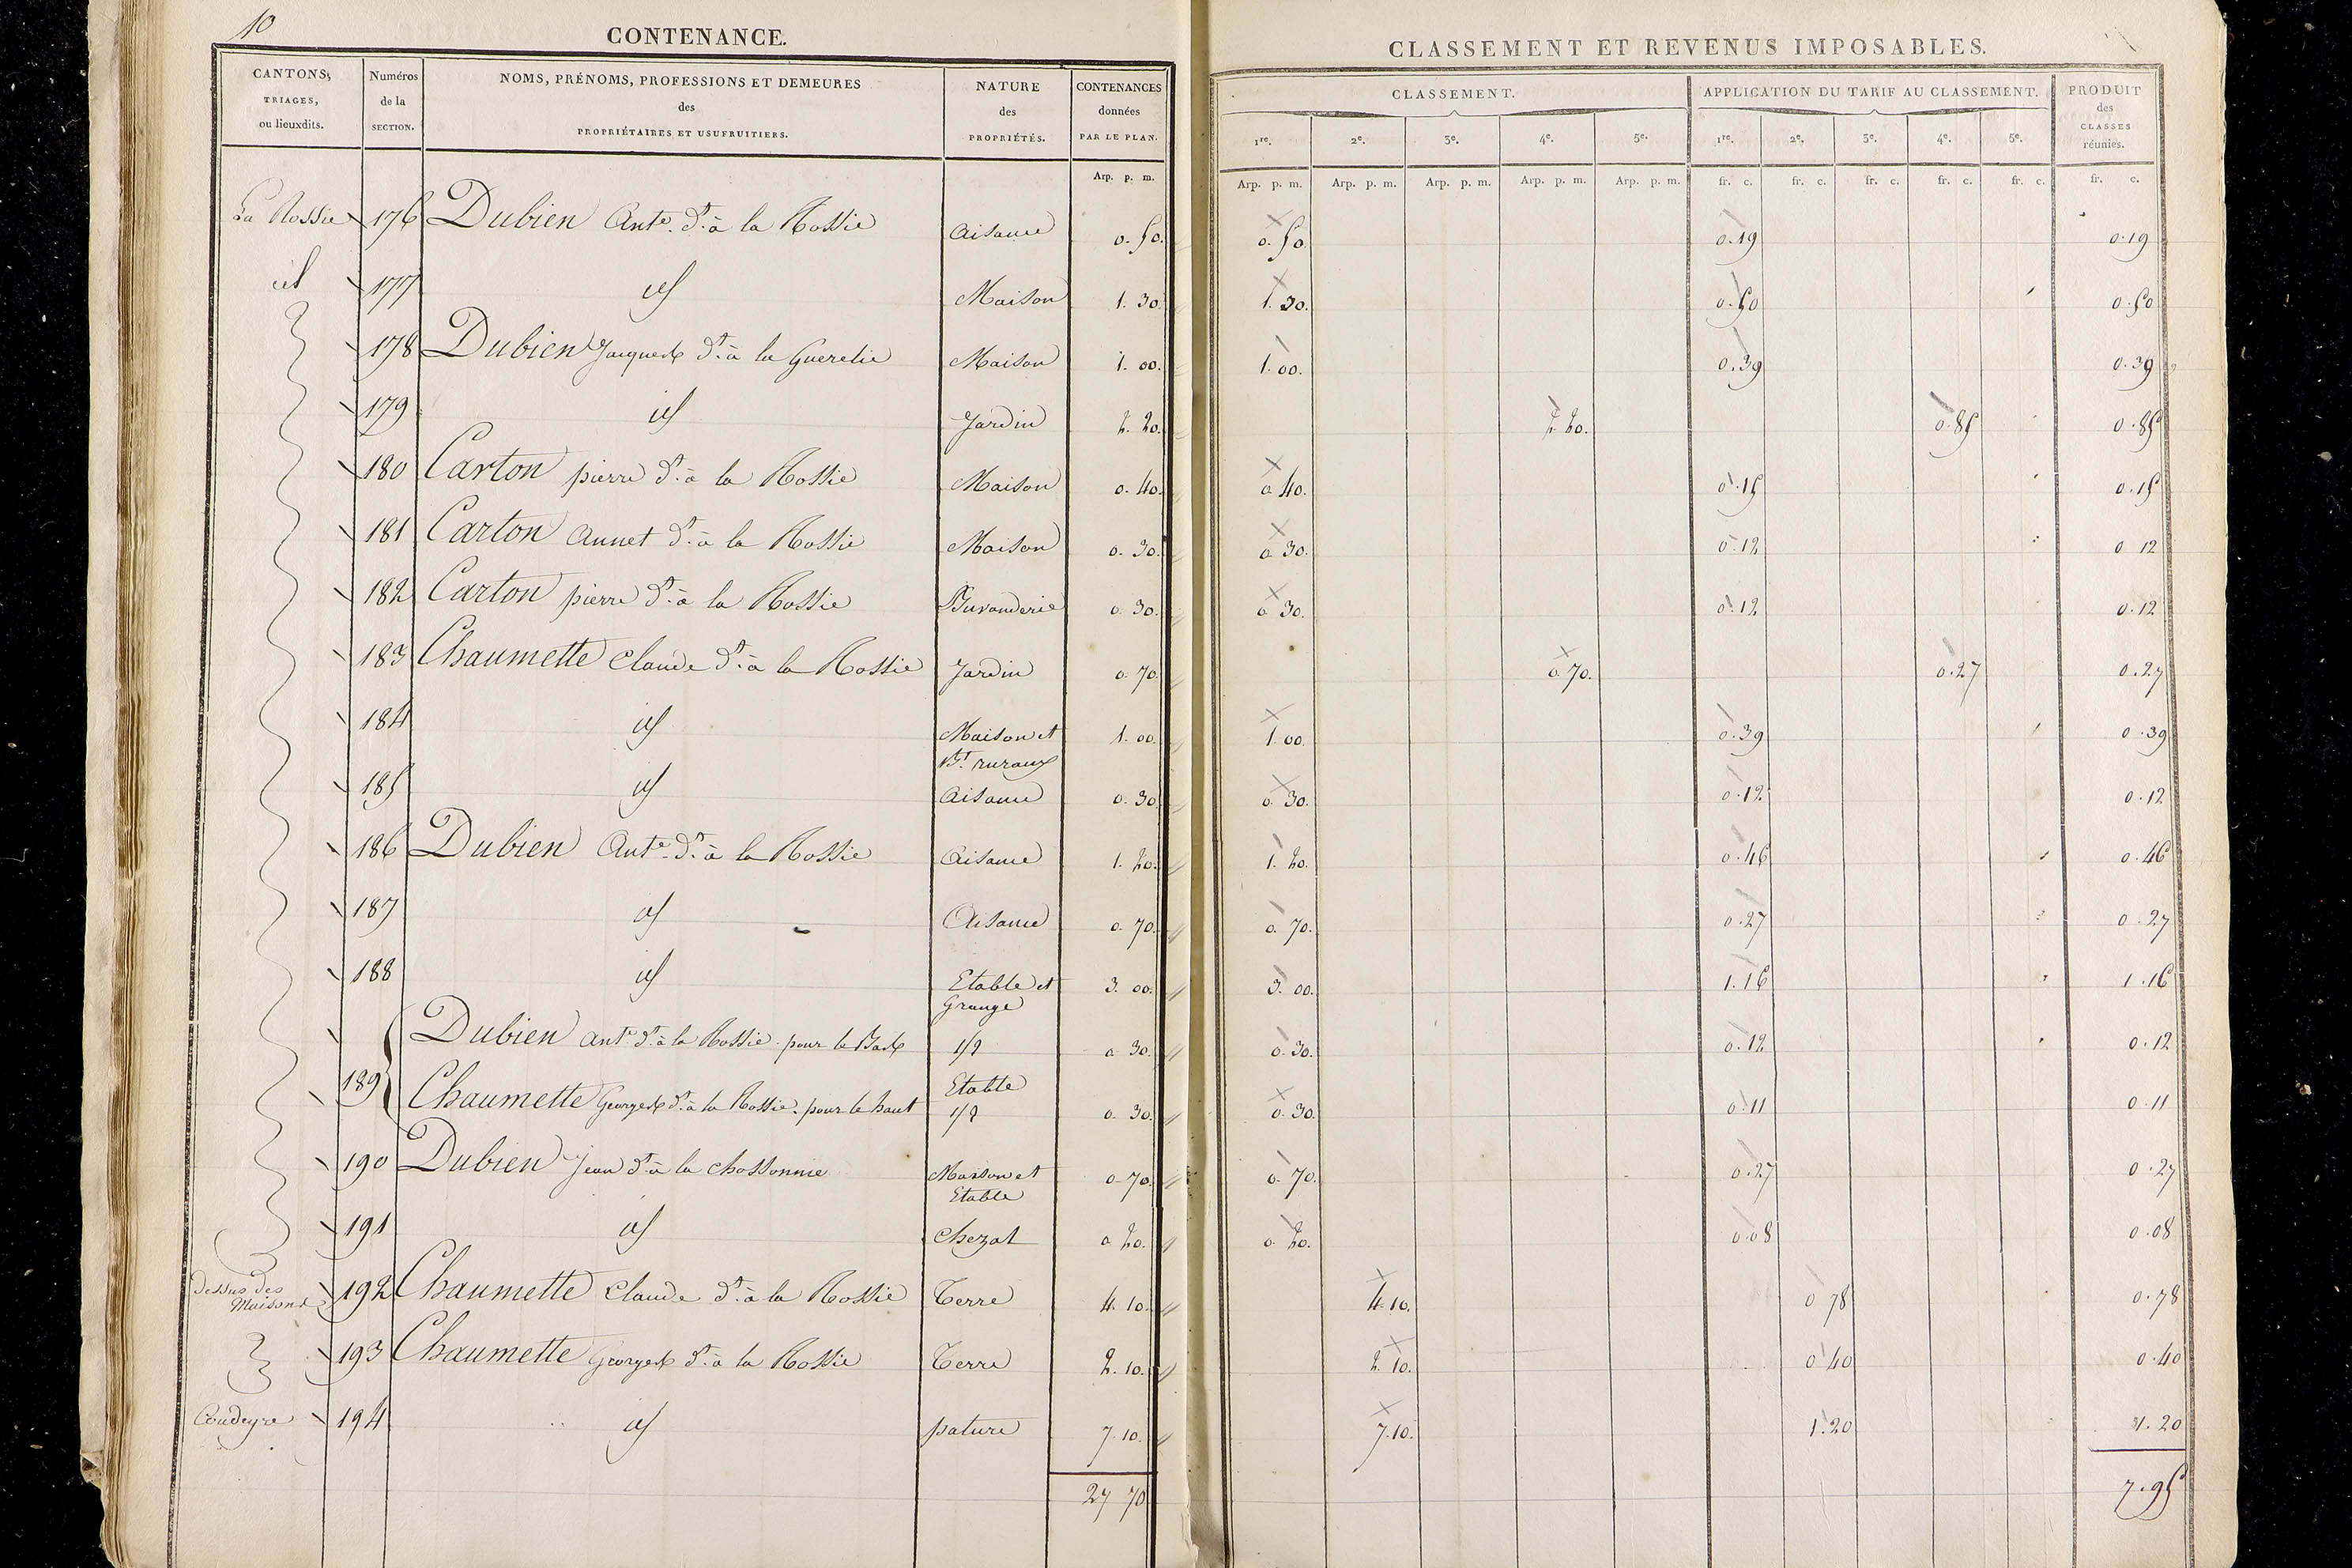 10
CONTENANCE.
CLASSEMENT ET REVENUS IMPOSABLES.
CANTONS, TRIAGES, ou lieuxdits. | Numéros de la SECTION. | NOMS, PRÉNOMS, PROFESSIONS ET DEMEURES des PROPRIÉTAIRES ET USUFRUITIERS. | NATURE des PROPRIÉTÉS. | CONTENANCES données PAR LE PLAN. | CLASSEMENT. | APPLICATION DU TARIF AU CLASSEMENT. | PRODUIT des CLASSES réunies.
1re. 2e. 3e. 4e. 5e. 1re. 2e. 3e. 4e. 5e.
Arp. p. m. Arp. p. m. Arp. p. m. Arp. p. m. Arp. p. m. Arp. p. m. fr. c. fr. c. fr. c. fr. c. fr. c. fr. c.
La Rossie 176 Dubien Ante. dt. à la Rossie Aisance 0. 50. 0. 50. 0.19 0.19
id 177 id Maison 1. 30. 1. 30. 0.50 0.50
178 Dubien Jacques dt. à la Gueretie Maison 1. 00. 1. 00. 0.39 0.39
179 id Jardin 2. 20. 2. 20. 0.85 0.85
180 Carton pierre dt. à la Rossie Maison 0. 40. 0 40. 0.15 0.15
181 Carton annet dt. à la Rossie Maison 0. 30. 0 30. 0.12 0 12
182 Carton pierre dt. à la Rossie Buvanderie 0. 30. 0 30. 0.12 0.12
183 Chaumette Claude dt. à la Rossie Jardin 0. 70. 0. 70. 0.27 0.27
184 id Maison et Bt. ruraux 1. 00. 1. 00. 0.39 0.39
185 id Aisance 0. 30. 0. 30. 0.12 0.12
186 Dubien Ante. dt. à la Rossie Aisance 1. 20. 1. 20. 0.46 0.46
187 id Aisance 0. 70. 0. 70. 0.27 0.27
188 id Etable et Grange 3. 00. 3. 00. 1.16 1.16
Dubien ante dt. à la Rossie. pour le Bas 1/2 0 30. 0. 30. 0.12 0.12
189 Etable
Chaumette Georges dt. à la Rossie. pour le haut 1/2 0. 30. 0. 30. 0.11 0.11
190 Dubien Jean dt. à la chossonnie Maison et Etable 0 70. 0. 70. 0.27 0.27
191 id Chezal 0 20. 0. 20. 0.08 0.08
dessus des Maisons 192 Chaumette Claude dt. à la Rossie Terre 4. 10. 4. 10. 0 78 0.78
193 Chaumette Georges dt. à la Rossie Terre 2. 10. 2. 10. 0 40 0.40
Coudeyre 194 id pature 7. 10. 7. 10. 1.20 1.20
27 70 7.95